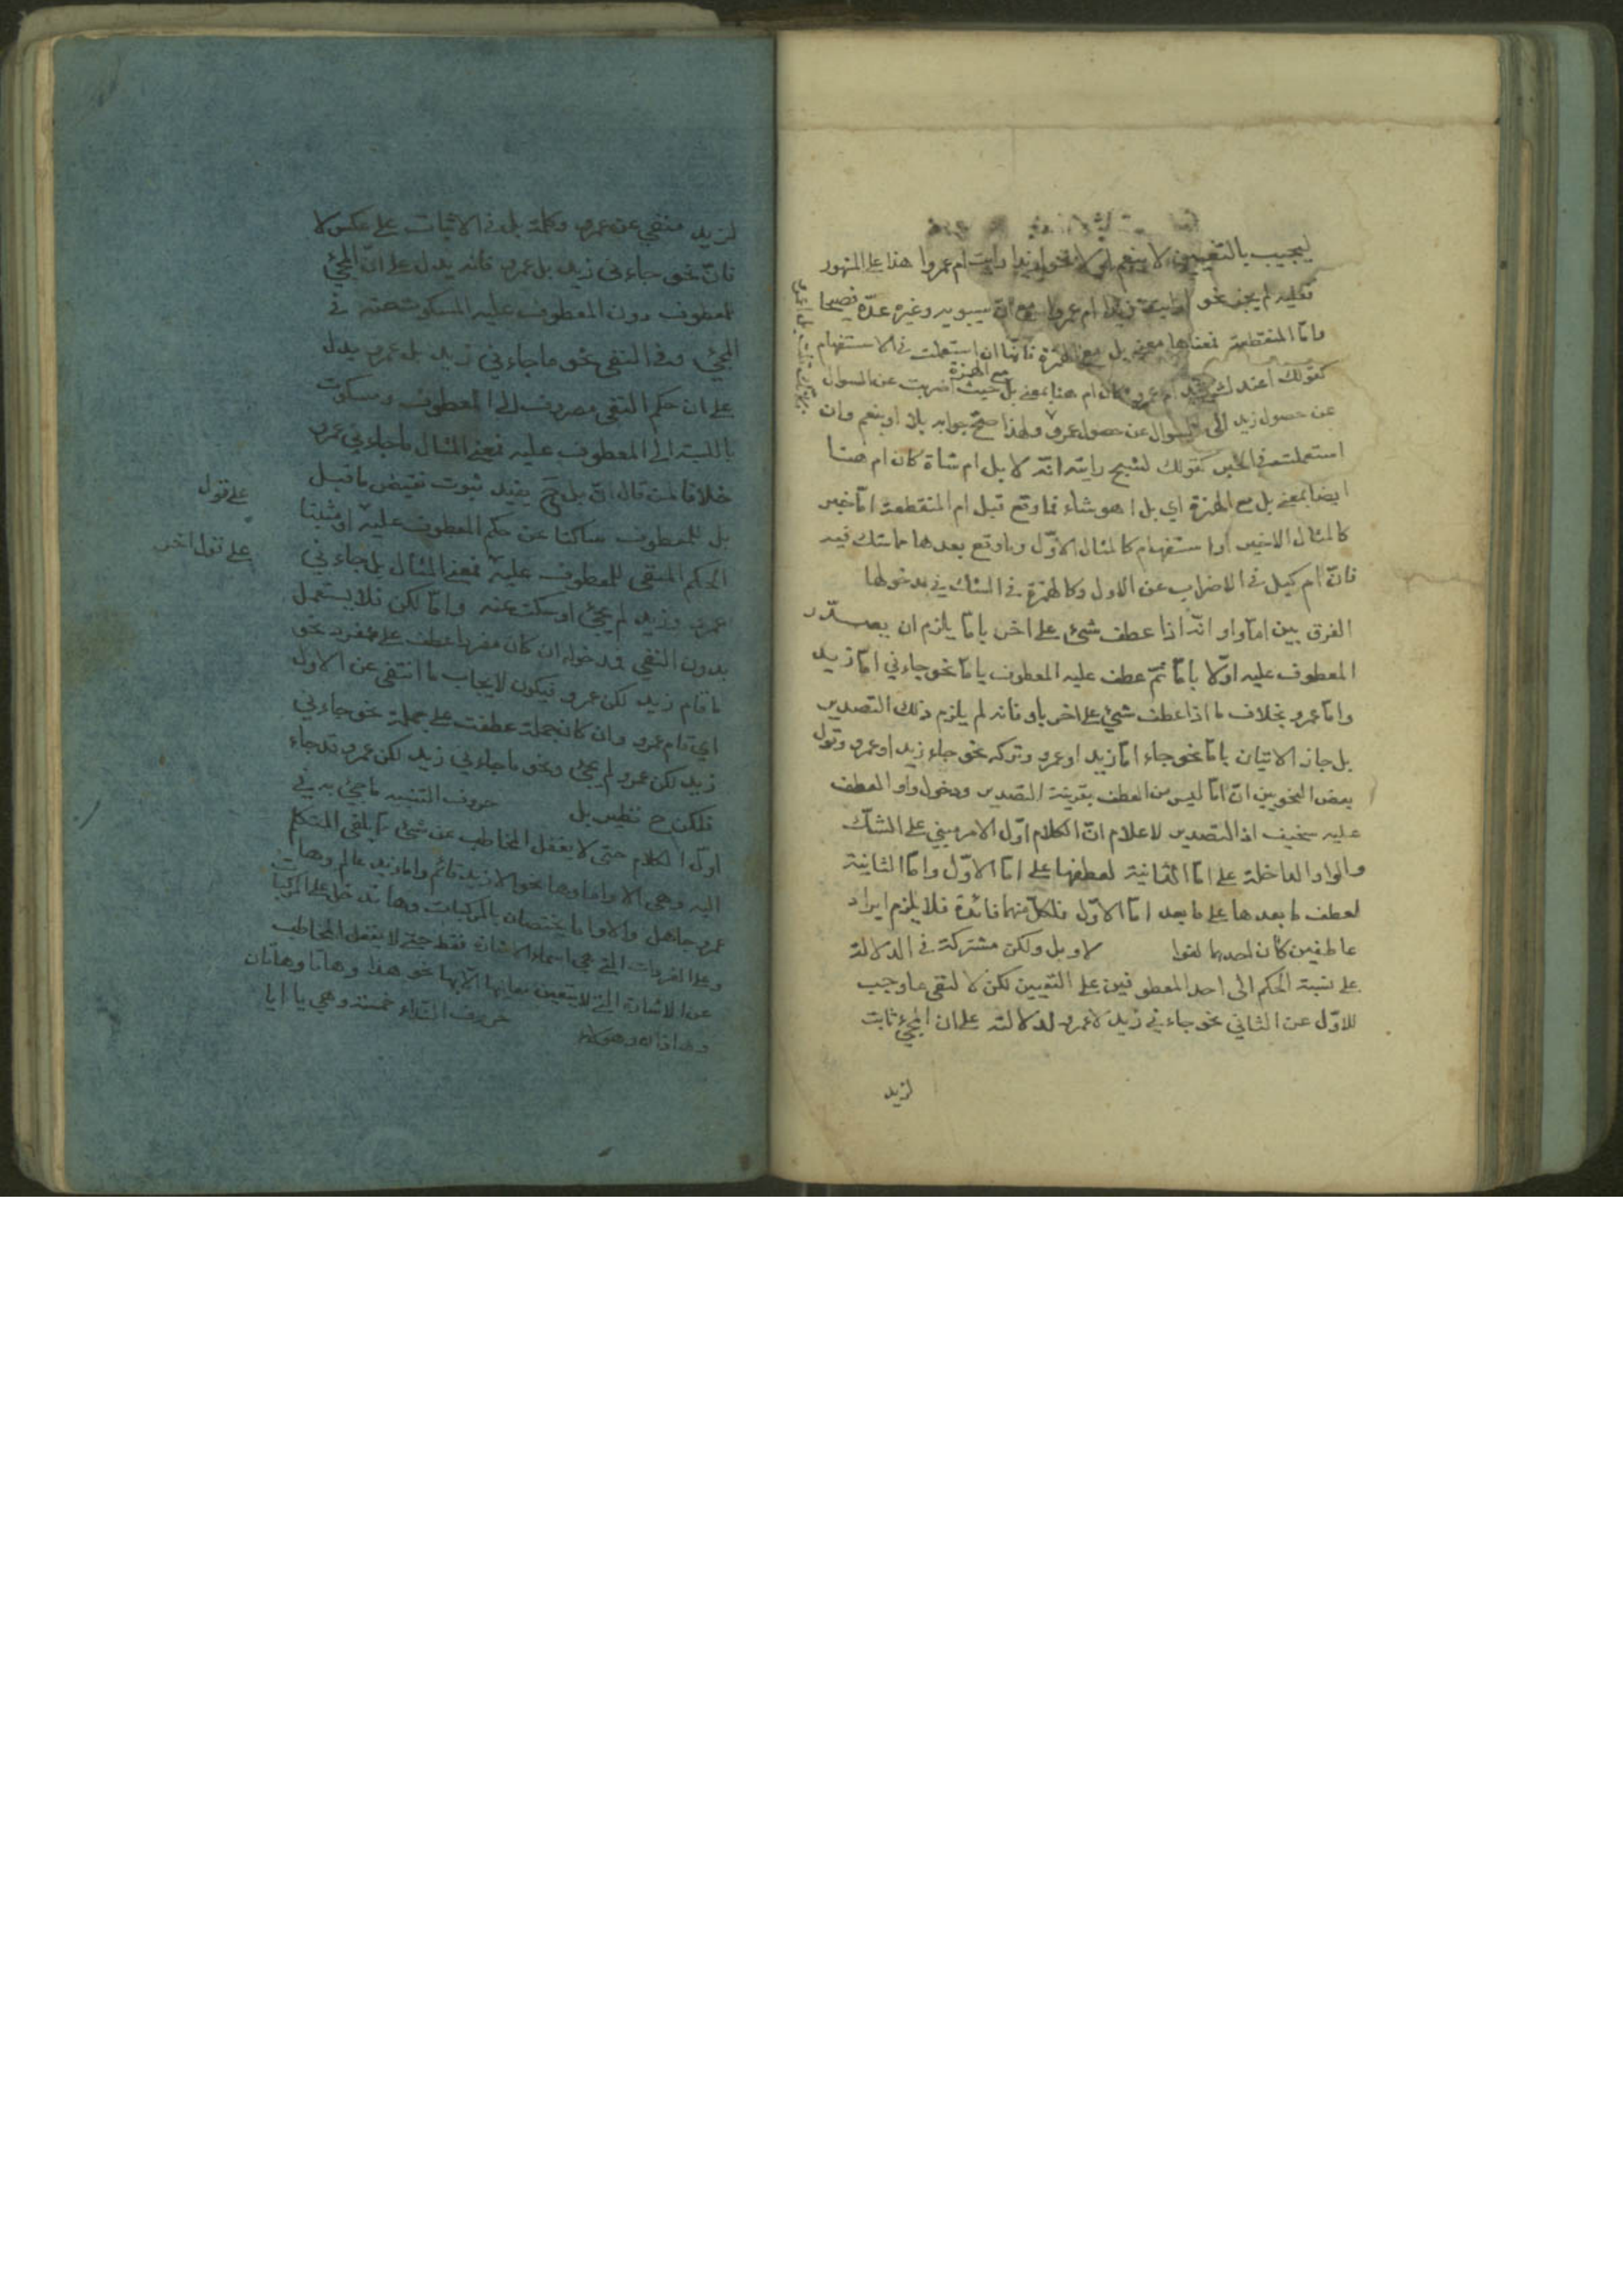 ليجيب بالتعيين لا بنعم او لا نحو ازيدا رايت ام عمروا هذا على المشهور
فعليه لم يجز نحو ارايت زيدا ام عمروا مع ان سيبويه وغيره عدّه فصيحا
وامّا المنقطعة فمعناها معنى بل مع الهمزة فانّها ان استعملت في الاستفهام
كقولك اعندك زيد ام عمرو كان ام هنا بمعنى بل مع الهمزة حيث اضربت عن السوال
عن حصول زيد الى السوال عن حصول عمرو ولهذا صحّ جوابه بلا او بنعم وان
استعملت في الخبر كقولك لشبح رايته انّه لا بل ام شاة كان ام هنا
ايضا بمعنى بل مع الهمزة اي بل ا هو شاء فما وقع قبل ام المنقطعة امّا خبر
كالمثال الاخير او استفهام كالمثال الاوّل وما وقع بعدها ما شك فيه
فانّ ام كبل في الاضراب عن الاول وكالهمزة في الشك في مدخولها
الفرق بين امّا واو انّه اذا عطف شيء على اخر بامّا يلزم ان يصدّر
المعطوف عليه اوّلا بامّا ثمّ عطف عليه المعطوف بامّا نحو جاءني امّا زيد
وامّا عمرو بخلاف ما اذا عطف شيء على اخر باو فانه لم يلزم ذلك التصدير
بل جاز الاتيان بامّا نحو جاء امّا زيد او عمرو وتركه نحو جاء زيد او عمرو وقول
بعض النحويين انّ امّا ليس من العطف بقرينة التصدير ودخول واو العطف
عليه سخيف اذ التصدير لاعلام انّ الكلام اوّل الامر مبني على الشكّ
والواو الداخلة على امّا الثانية لعطفها على امّا الاوّل وامّا الثانية
لعطف ما بعدها على ما بعد امّا الاوّل فلكلّ منهما فائدة فلا يلزم ايراد
عاطفين كان احدهما لغوا لا وبل ولكن مشتركة في الدلالة
على نسبة الحكم الى احد المعطوفين على التعيين لكن لا لنفي ما وجب
للاوّل عن الثاني نحو جاءني زيد لا عمرو لدلالته على ان المجيء ثابت
لزيد
لزيد منفي عن عمرو وكلمة بل في الاثبات على عكس لا
فانّ نحو جاءني زيد بل عمرو فانه يدل على انّ المجيء
للمعطوف دون المعطوف عليه المسكوت عنه في
المجيء وفي النفي نحو ما جاءني زيد بل عمرو يدل
على ان حكم النفي مصروف الى المعطوف ومسكوت
بالنسبة الى المعطوف عليه فمعنى المثال ما جاءني عمرو
خلافا لمن قال انّ بل ح يفيد ثبوت نقيض ما قبل
بل للمعطوف ساكتا عن حكم المعطوف عليه او مثبتا
الحكم المنفي للمعطوف عليه فمعنى المثال بل جاءني
عمرو وزيد لم يجئ او سكت عنه وامّا لكن فلا يستعمل
بدون النفي فدخوله ان كان مفردا عطف على مفرد نحو
ما قام زيد لكن عمرو فيكون لايجاب ما انتفى عن الاول
اي قام عمرو وان كان جملة عطفت على جملة نحو جاءني
زيد لكن عمرو لم يجئ ونحو ما جاءني زيد لكن عمرو قد جاء
فلكن ح نظير بل حروف التنبيه ما جيء به في
اوّل الكلام حتى لا يغفل المخاطب عن شيء ممّا يلقى المتكلم
اليه وهي الا واما وها نحو الا زيد قائم واما زيد عالم وها
عمرو جاهل والا واما يختصان بالمركبات وها تدخل على المركبات
وعلى المفردات التي هي اسماء الاشارة فقط حتى لا يغفل المخاطب
عن الاشارة التي لا يتعين معانيها الّا بها نحو هذا وهاتا وهاتان
وهذان وهؤلاء حروف النداء خمسة وهي يا ايا
على قول
على قول اخر